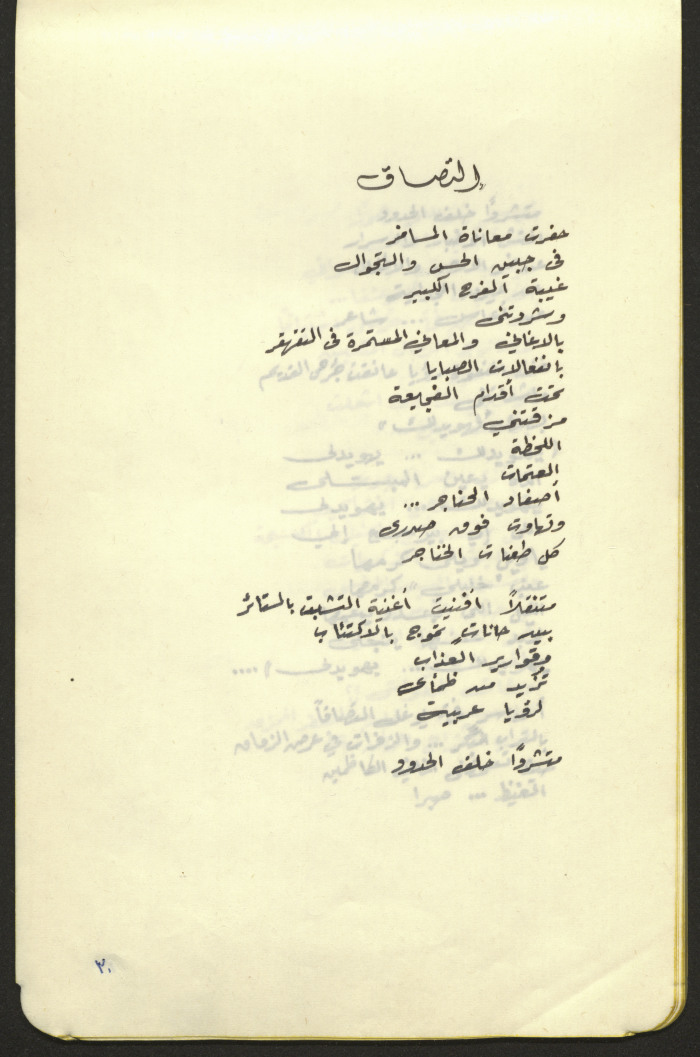 إلتصاق
حفرت معاناة المسافر
في جبين الحس والتجوال
غيبة الفرح الكبير
وشردتني
بالاغاني والمعاني المستمرة في التقهقر
بانفعالات الصبايا
تحت أقدام الفجيعة
مزقتني
اللحظة
المعتمات
أصفاد الحناجر ...
وتهاوت فوق صدري
كل طعنات الخناجر
متنقلاً أفنيت أغنية التشبث بالستائر
بين حاناتٍ تموج بالاكتئاب
وقوارير العذاب
تُزيد من ظمئي
لرؤيا عربيت
متشردًا خلف الحدود
٣٠